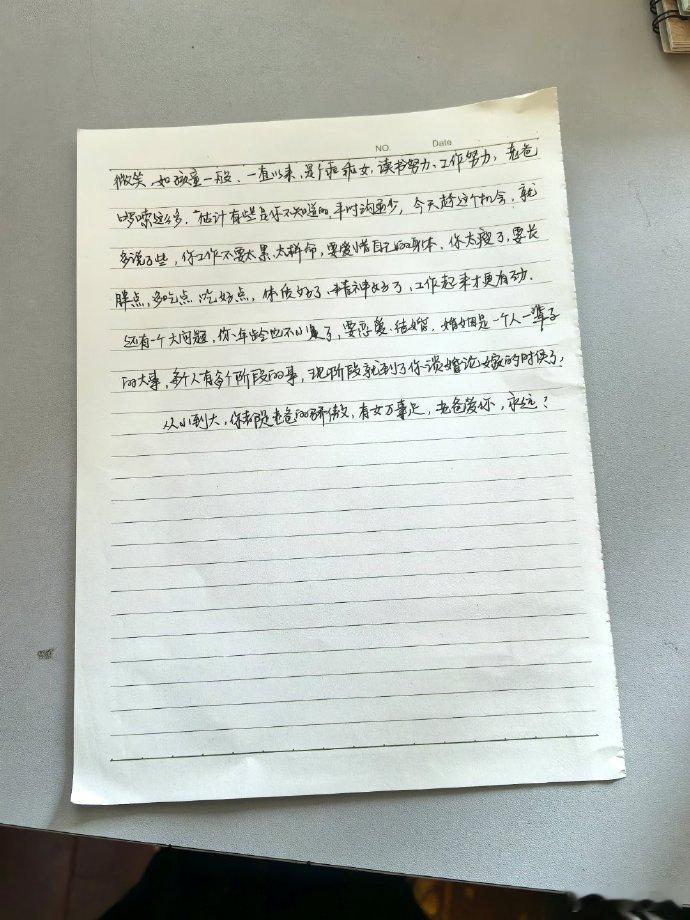 NO.
Date
微笑,如孩童一般。一直以来,是个乖乖女,读书努力、工作努力,老爸
啰嗦这么多,估计有些是你不知道的,平时沟通少,今天趁这个机会,就
多说了些,你工作不要太累,太拼命,要爱惜自己的身体,你太瘦了,要长
胖点,多吃点,吃好点,体质好了,精神好了,工作起来才更有劲.
还有一个大问题,你年龄也不小了,要恋爱、结婚,婚姻是一个人一辈子
的大事,每个人有每个阶段的事,现阶段就到了你谈婚论嫁的时候了!
从小到大,你都是老爸的骄傲,有女万事足,老爸爱你,永远!